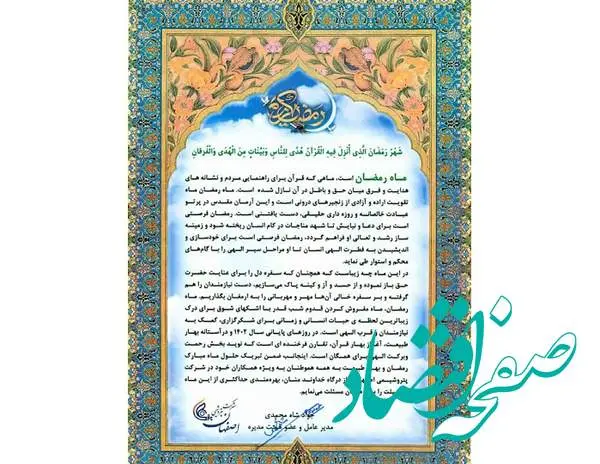 رمضان کریم
شَهْرُ رَمَضَانَ الَّذِی أُنْزِلَ فِیهِ الْقُرْآنُ هُدًی لِلنَّاسِ وَبَیِّنَاتٍ مِنَ الْهُدَی وَالْفُرْقَانِ
ماه رمضان است، ماهی که قرآن برای راهنمایی مردم و نشانه های
هدایت و فرق میان حق و باطل در آن نازل شده است. ماه رمضان ماه
تقویت اراده و آزادی از زنجیرهای درونی است و این آرمان مقدس در پرتو
عبادت خالصانه و روزه داری حقیقی، دست یافتنی است. رمضان فرصتی
است برای دعا و نیایش تا شهد مناجات در کام انسان ریخته شود و زمینه
ساز رشد و تعالی او فراهم گردد، رمضان فرصتی است برای خودسازی و
اندیشیدن به فطرت الهی انسان تا او مراحل سیر الهی را با گام‌های
محکم و استوار طی نماید.
در این ماه چه زیباست که همچنان که سفره دل را برای عنایت حضرت
حق باز نموده و از حسد و آز و کینه پاک می‌سازیم، دست نیازمندان را هم
گرفته و بر سفره خالی آن‌ها مهر و مهربانی را به ارمغان بگذاریم. ماه
رمضان، ماه مفروش کردن قدوم شب قدر با اشکهای شوق برای درک
زیباترین لحظه ی حیات انسانی و زمانی برای شکرگزاری، کمک به
نیازمندان و قرب الهی است. در روزهای پایانی سال ۱۴۰۲ و در آستانه بهار
طبیعت، آغاز بهار قرآن، تقارن فرخنده ای است که نوید بخش رحمت
وبرکت الهی برای همگان است. اینجانب ضمن تبریک حلول ماه مبارک
رمضان و بهار طبیعت به همه هموطنان به ویژه همکاران خود در شرکت
پتروشیمی اصفهان از درگاه خداوند منان، بهره‌مندی حداکثری از این ماه
را مسئلت می‌نمایم.
جواد شاه محمدی
مدیر عامل و عضو هیئت مدیره
اصفهان
صفحه اقتصاد